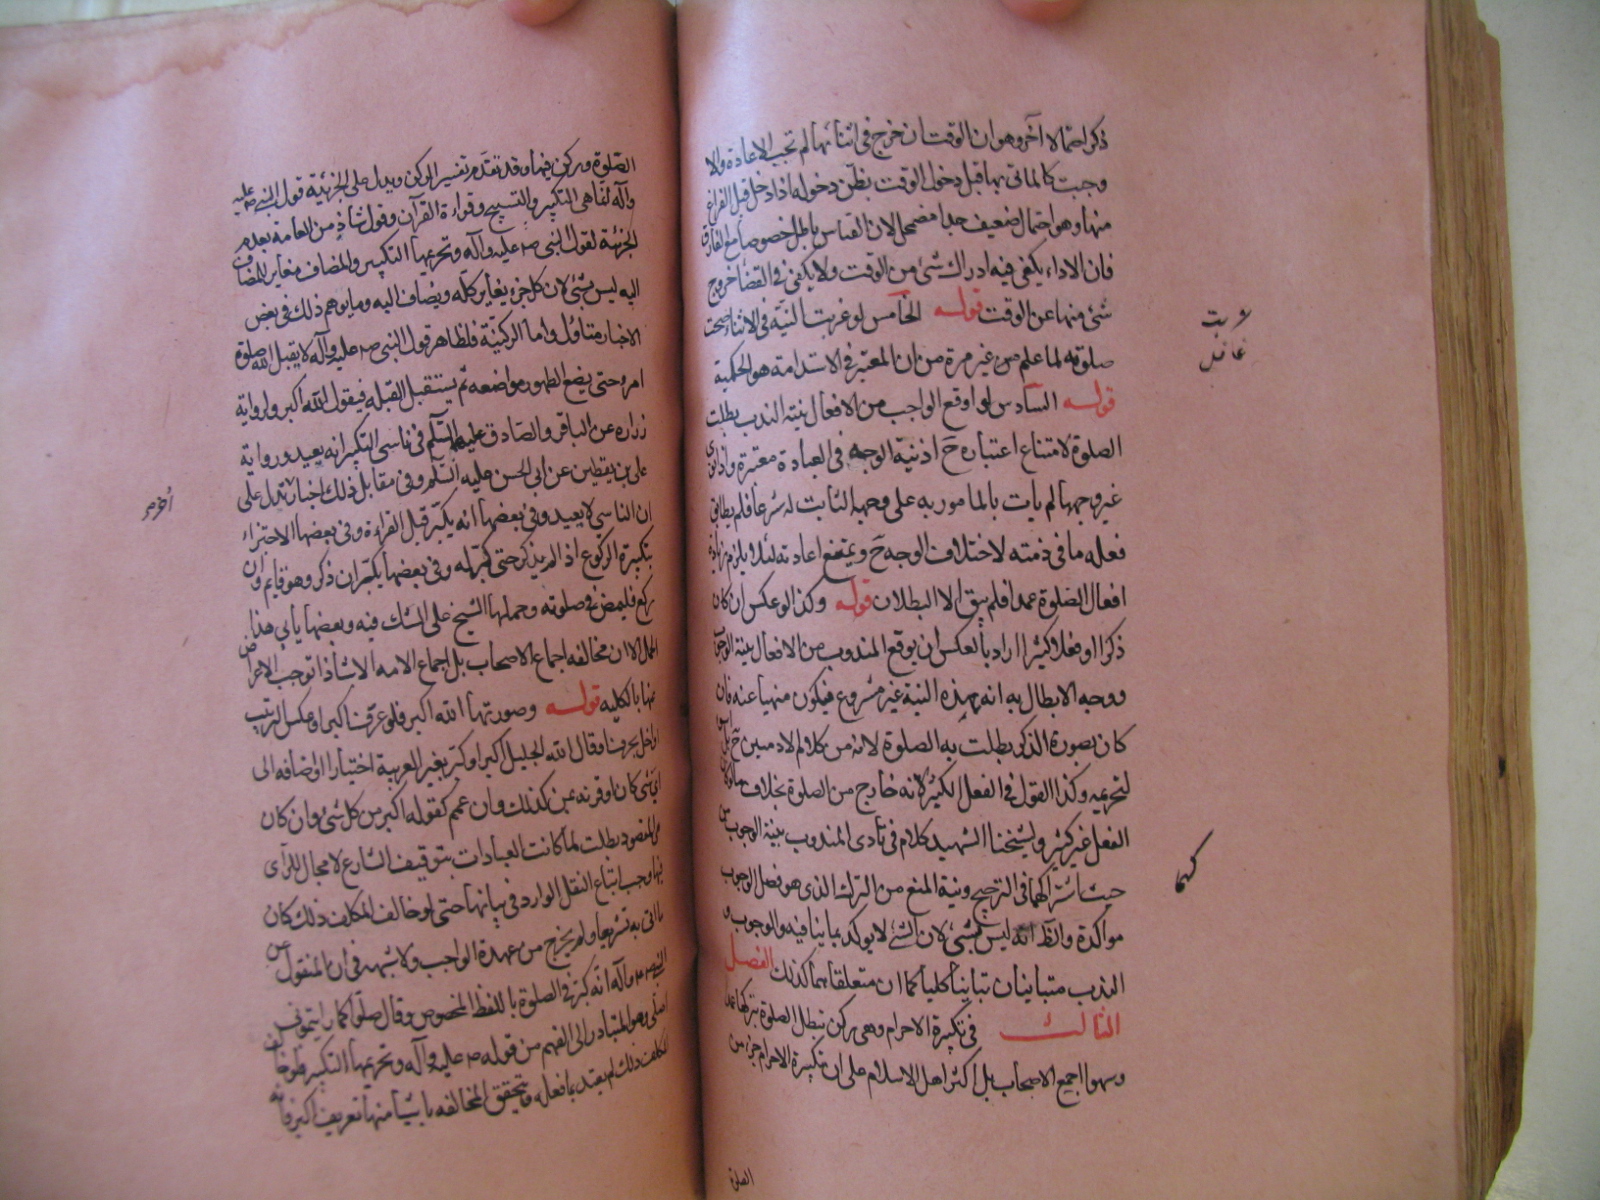 ذكر احتمالا آخر وهو ان الوقت ان خرج في اثنائها لم تجب الاعادة والا
وجبت كالماتى بها قبل دخول الوقت بظن دخوله اذا دخل قبل الفراغ
منها وهو احتمال ضعيف جدا مضمحل لان القياس باطل خصوصا مع الفارق
فان الاداء يكفى فيه ادراك شئ من الوقت ولا يكفى في القضا خروج
شئ منها عن الوقت قوله الخامس لو عزبت النية في الاثناء صحت
صلوته لما علم من غير مرة من ان المعتبر في الاستدامة هو الحكمية
قوله السادس لو اوقع الواجب من الافعال بنية الندب بطلت
الصلوة لامتناع اعتباره ح اذ نية الوجه في العبادة معتبرة واذا نوى
غير وجهها لم يات بالمامور به على وجهه الثابت له شرعا فلم يطابق
فعله ما في ذمته لاختلاف الوجه ح ويمتنع اعادته لئلا يلزم زيادة
افعال الصلوة عمدا فلم يبق الا البطلان قوله وكذا لو عكس ان كان
ذكرا او فعلا كثيرا اراد بالعكس ان يوقع المندوب من الافعال بنية الوجوب
ووجه الابطال به انه بهذه النية غير مشروع فيكون منهيا عنه فان
كان بصورة الذكر بطلت به الصلوة لانه من كلام الادميين ح
لتحريمه وكذا القول في الفعل الكثير لانه خارج من الصلوة بخلاف ما لو كان
الفعل غير كثير ولشيخنا الشهيد كلام في تادى المندوب بنية الوجوب من
حيث اشتراكهما في الترجيح ونية المنع من الترك الذى هو فصل الوجوب
مواكدة والظ انه ليس بشئ لان الشئ لا يوكد بما ينافيه والوجوب و
الندب متباينان تباينا كليا كما ان متعلقاهما كذلك الفصل
الثالث في تكبيرة الاحرام وهى ركن تبطل الصلوة بتركها عمدا
وسهوا اجمع الاصحاب بل اكثر اهل الاسلام على ان تكبيرة الاحرام جزء من
عزبت
غافل
كهما
الصلوة
الصلوة وركن فيها وقد تقدم تفسير الركن ويدل على الجزئية قول النبى ص عليه
وآله انما هى التكبير والتسبيح وقراءة القرآن وقول شاذ من العامة بعدم
الجزئية لقول النبى ص عليه وآله وتحريمها التكبير والمضاف مغاير للمضاف
اليه ليس بشئ لان كل جزء يغاير كله ويضاف اليه وما يوهم ذلك في بعض
الاخبار متاول واما الركنية فلظاهر قول النبى ص عليه وآله لا يقبل الله صلوة
امرء حتى يضع الطهور مواضعه ثم يستقبل القبلة فيقول الله اكبر ولرواية
زراره عن الباقر والصادق عليهما السلم في ناسى التكبير انه يعيد ورواية
على بن يقطين عن ابى الحسن عليه السلم وفى مقابل ذلك اخبار تدل على
ان الناسي لا يعيد وفى بعضها انه يكبر قبل القراءة وفى بعضها الاجتزاء
بتكبيرة الركوع اذا لم يذكر حتى كبر له وفى بعضها يكبر ان ذكر وهو قايم وان
ركع فليمض في صلوته وحملها الشيخ على الشك فيه وبعضها يابى هذا
الحمل الا ان مخالفه اجماع الاصحاب بل اجماع الامه الا شاذا توجب الاعراض
عنها بالكلية قوله وصورتها الله اكبر فلو عرف اكبر او عكس الترتيب
او اخل بحرف او قال الله الجليل اكبر او كبر بغير العربية اختيارا او اضافه الى
اى شئ كان او قرنه بمن كذلك وان عمم كقوله اكبر من كل شئ وان كان
هو المقصود بطلت لما كانت العبادات بتوقيف الشارع لا مجال للرأى
فيها وجب اتباع النقل الوارد في بيانها حتى لو خالف المكلف ذلك كان
ما اتى به تشريعا ولم يخرج من عهدة الواجب ولا شبهه في ان المنقول عن
النبى ص وآله انه كبر في الصلوة باللفظ المخصوص وقال صلوا كما رايتمونى
اصلى وهو المتبادر الى الفهم من قوله ص عليه وآله وتحريمها التكبير فلو خالف
المكلف ذلك لم يعتد بما فعله وتتحقق المخالفه باشيا منها تعريف اكبر فانه